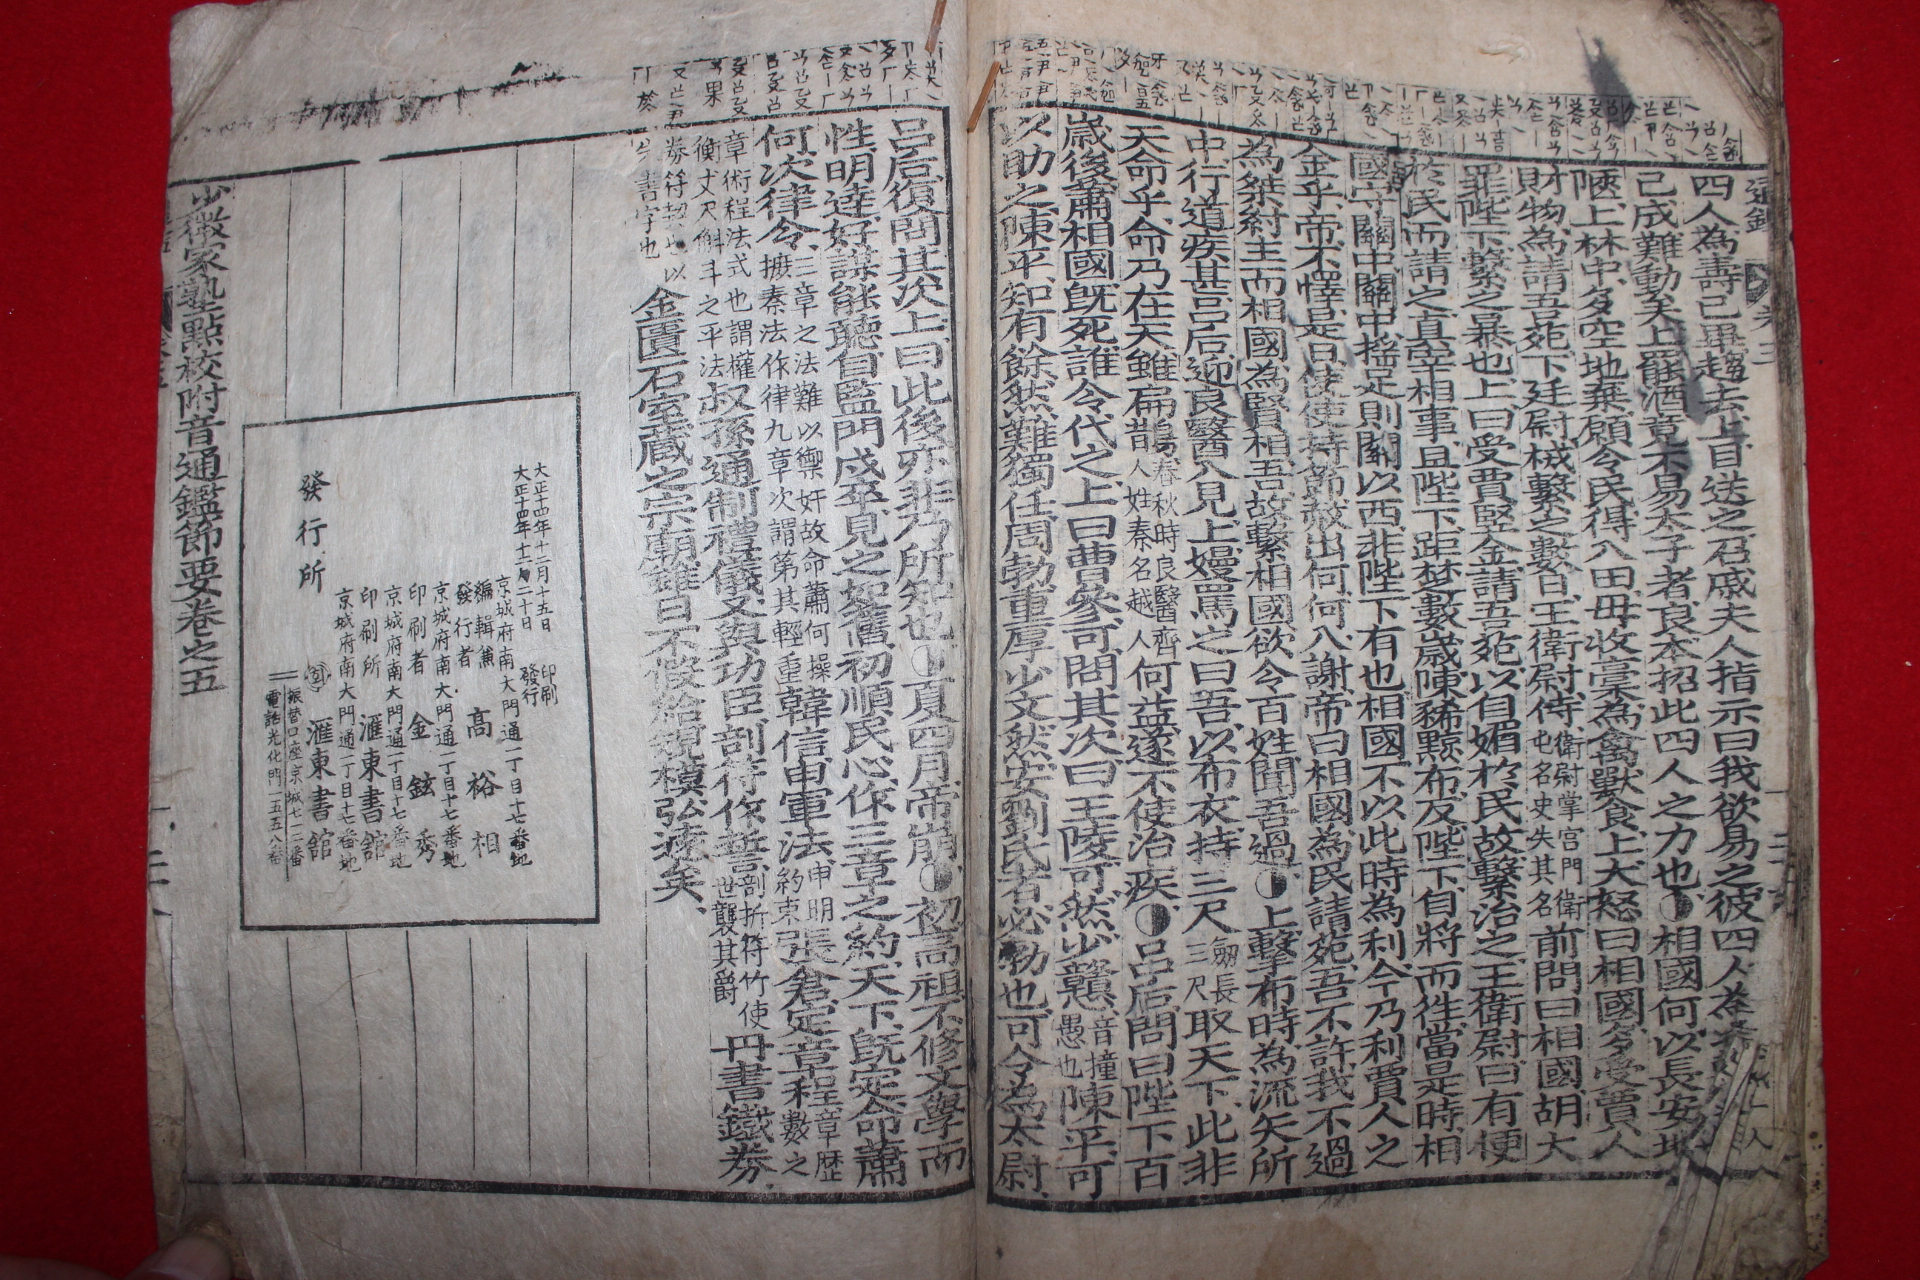 四人為壽已畢趨去上目送之召戚夫人指示曰我欲易之彼四人
己成難動矣上罷酒竟不易太子者良本招此四人之力也相國何以長安地
陿上林中多空地棄願令民得入田毋收稾為禽獸食上大怒曰相國多受賈人
財物為請吾苑下廷尉械繫之數日王衛尉侍
衛尉掌宮門衛
也名史失其名
前問曰相國胡大
罪陛下繫之暴也上曰受賈竪金請吾苑以自媚於民故繫治之王衛尉曰有便
於民而請之真宰相事且陛下距楚數歲陳豨黥布反陛下自將而徃當是時相
國守關中關中搖足則關以西非陛下有也相國不以此時為利今乃利賈人之
金乎帝不懌是日使使持節赦出何何入謝帝曰相國為民請苑吾不許我不過
為桀紂主而相國為賢相吾故繫相國欲令百姓聞吾過上擊布時為流矢所
中行道疾甚呂后迎良醫入見上嫚罵之曰吾以布衣持三尺
劒長
三尺
取天下此非
天命乎命乃在天雖扁鵲
春秋時良醫齊
人姓秦名越人
何益遂不使治疾呂后問曰陛下百
歲後蕭相國旣死誰令代之上曰曹參可問其次曰王陵可然少戇
音撞
愚也
陳平可
以助之陳平知有餘然難獨任周勃重厚少文然安劉氏者必勃也可令為太尉
呂后復問其次上曰此後亦非乃所知也夏四月帝崩初高祖不修文學而
性明達好謀能聽自監門戍卒見之如舊初順民心作三章之約天下旣定命蕭
何次律令
三章之法難以禦奸故命蕭何
攈秦法作律九章次謂第其輕重
韓信申軍法
申明
約束
張倉定章程
章歴
數之
章術程法式也謂權
衡丈尺斛斗之平法
叔孫通制禮儀又與功臣剖符作誓
剖折符竹使
世襲其爵
丹書鐵券
以
金匱石室藏之宗廟雖日不暇給規模弘遠矣
大正十四年十二月十五日 印刷
大正十四年十二月二十日 發行
京城府南大門通一丁目十七番地
編輯兼
發行者 高裕相
京城府南大門通一丁目十七番地
印刷者 金鉉秀
京城府南大門通一丁目十七番地
印刷所 滙東書館
京城府南大門通一丁目十七番地
發行所 滙東書館
振替口座京城七一二番
電話光化門一五五八番
少微家塾點校附音通鑑節要卷之五